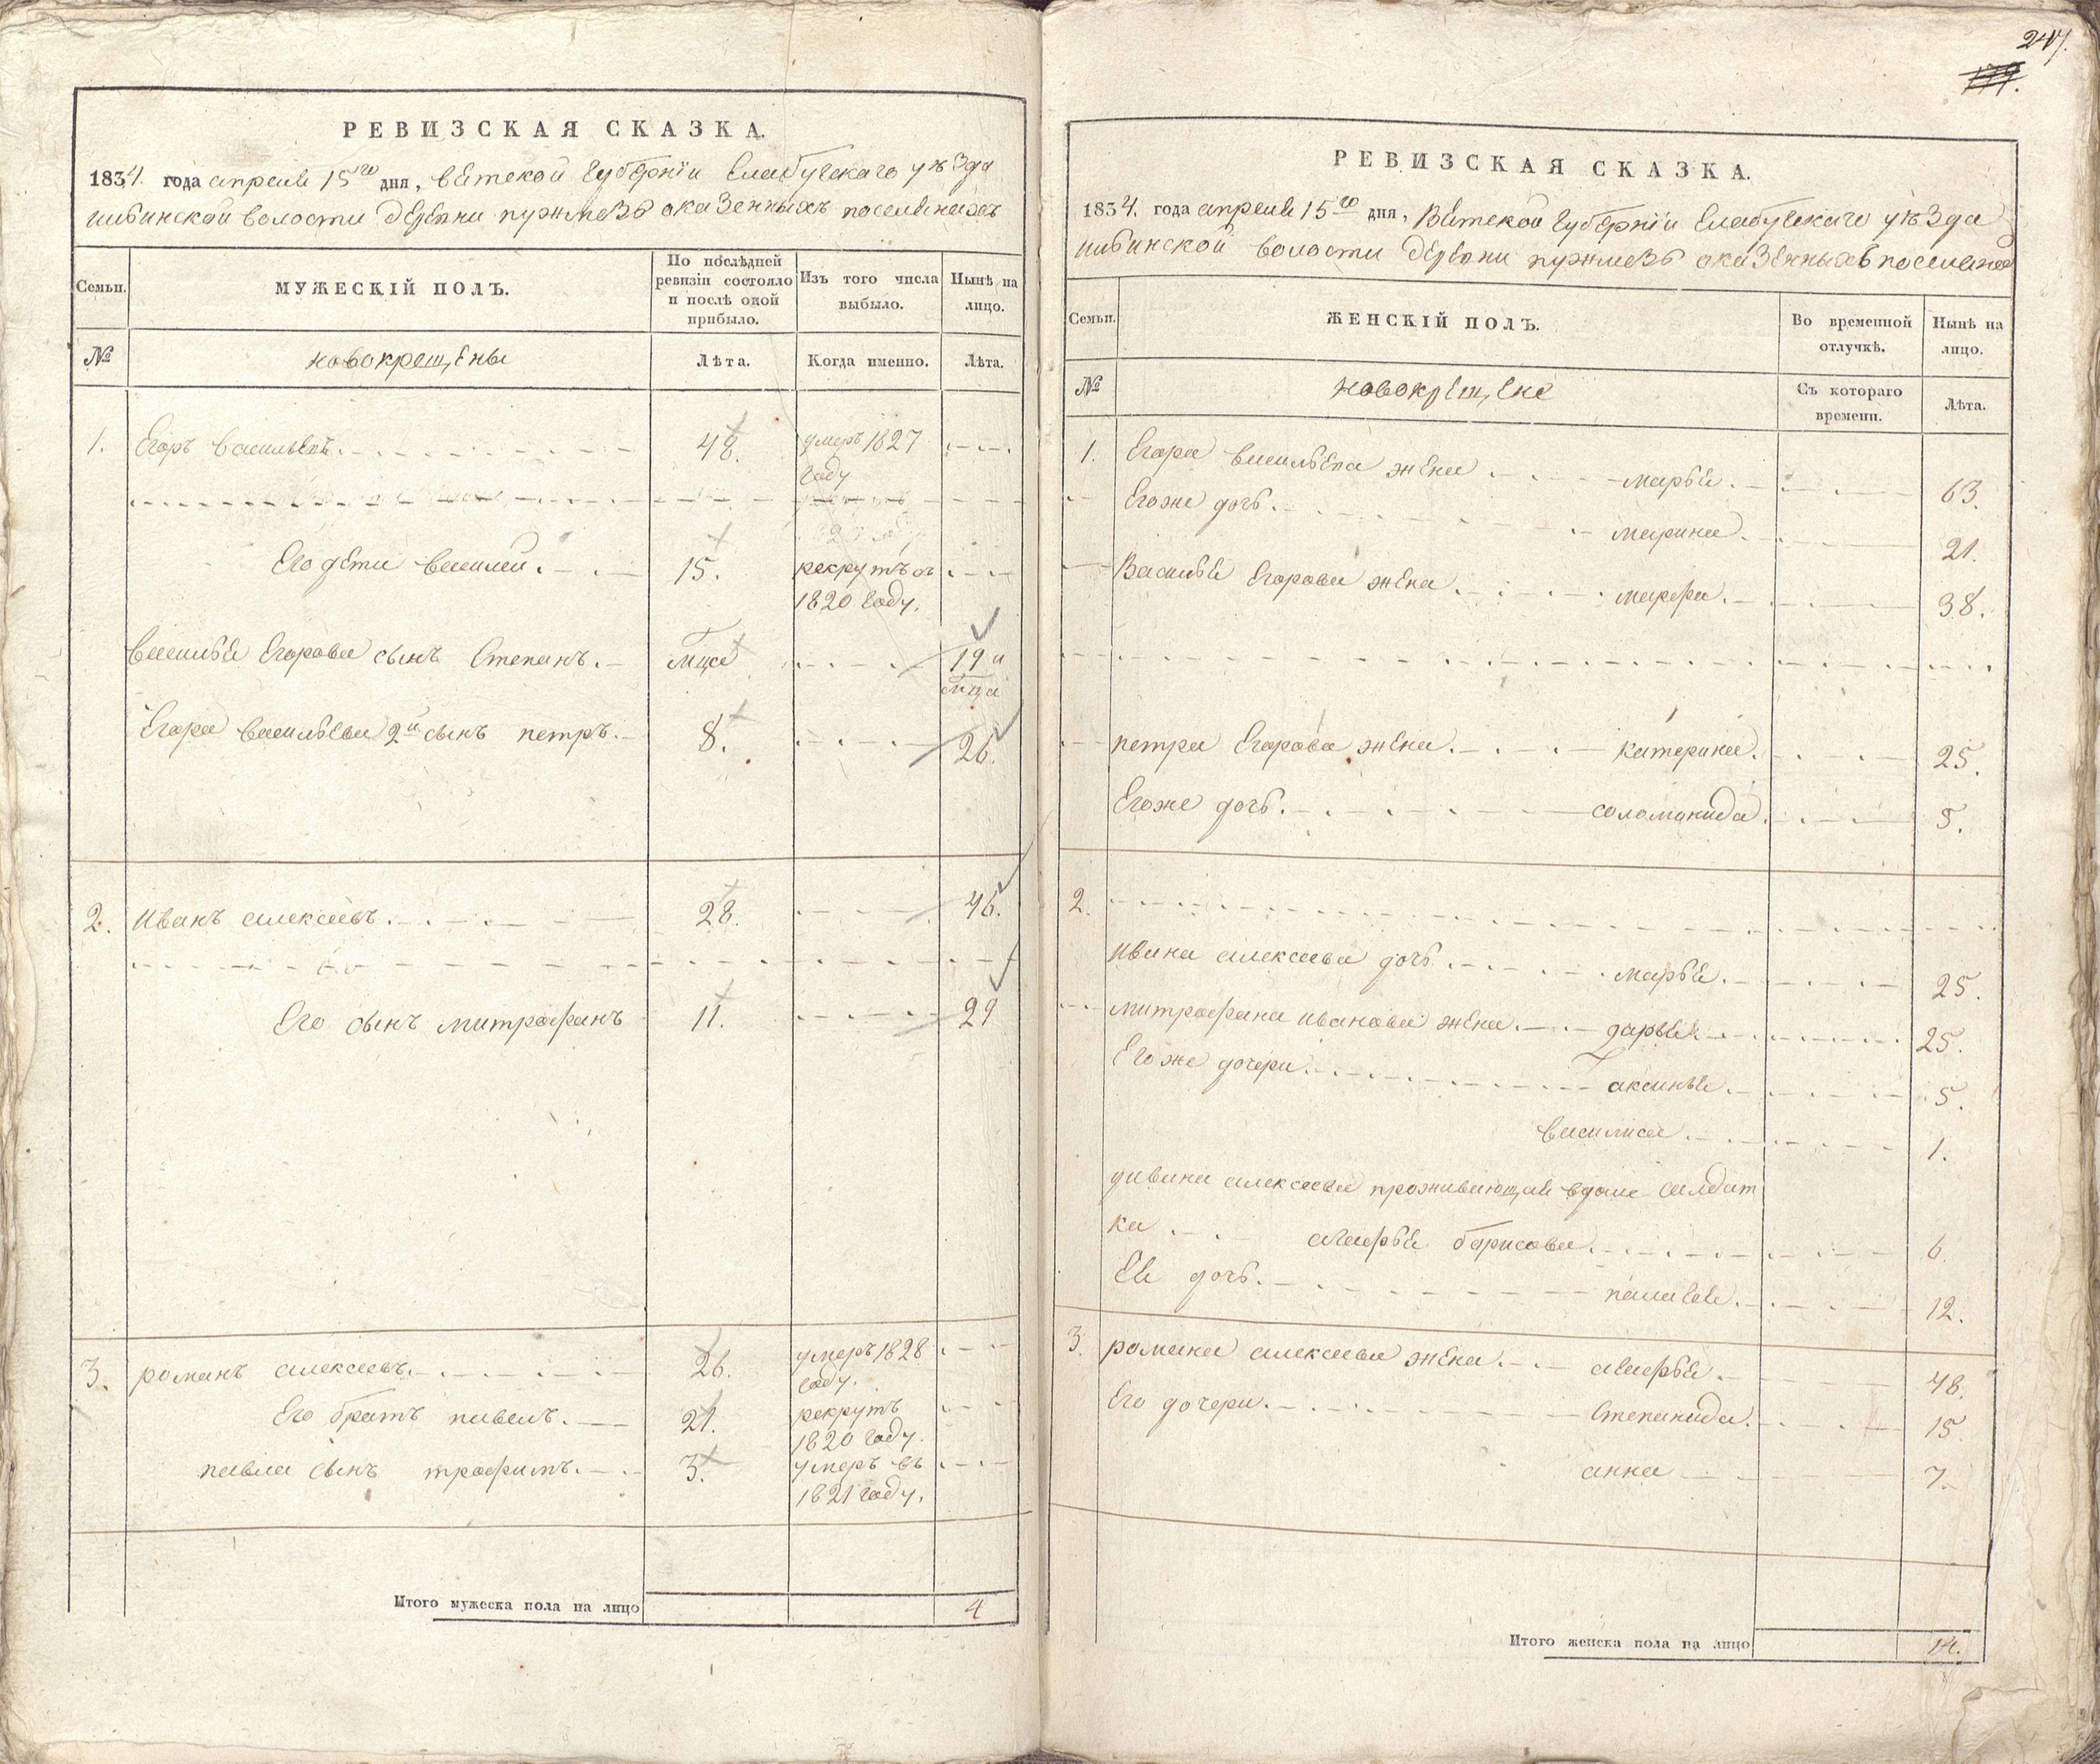 247.
179.
РЕВИЗСКАЯ СКАЗКА.
1834. года апреля 15го дня, вятской губернїи Елабугскаго уѣзда
волости деревни оказенныхъ поселянахъ
Семьи.
МУЖЕСКІЙ ПОЛЪ.
По послѣдней ревизіи состояло и послѣ оной прибыло.
Изъ того числа выбыло.
Нынѣ на лицо.
№
новокрещены
Лѣта.
Когда именно.
Лѣта.
1. Егоръ васильевъ. 48. умеръ 1827 году
Его дети василеи. 15. рекрутъ въ 1820 году.
василья Егорова сынъ Степанъ. мца 19 и мца
Егора васильева 2й сынъ петръ. 8. 26.
2. иванъ алексеевъ. 28. 46.
Его сынъ митрофанъ 11. 29
3. романъ алексеевъ. 26. умеръ 1828 году.
Его братъ павелъ. 21. рекрутъ 1820 году.
павла сынъ трофимъ. 3. умеръ въ 1821 году.
Итого мужеска пола на лицо 4
РЕВИЗСКАЯ СКАЗКА.
1834. года апреля 15го дня, Вятской губернїи Елабугскаго уѣзда
волости деревни оказенныхъ поселянах
Семьи.
ЖЕНСКІЙ ПОЛЪ.
Во временной отлучкѣ.
Нынѣ на лицо.
№
новокрещене
Съ котораго времени.
Лѣта.
1. Егора васильева жена марья. 63.
Егоже дочь. марина. 21.
Василья Егорова жена марфа. 38.
петра Егорова жена катерина. 25.
Егоже дочь. соломанида. 5.
2.
ивана алексеева дочь марья. 25.
митрофана иванова жена дарья. 25.
Егоже дочери. аксинья. 5.
василиса. 1.
уивана алексеева проживающая вдоме салдат
ка марфья борисова. 6
Ея дочь. палагея. 12.
3. романа алексеева жена марфья. 48.
Его дочери. Степанида. 15
анна 7.
Итого женска пола на лицо 14.